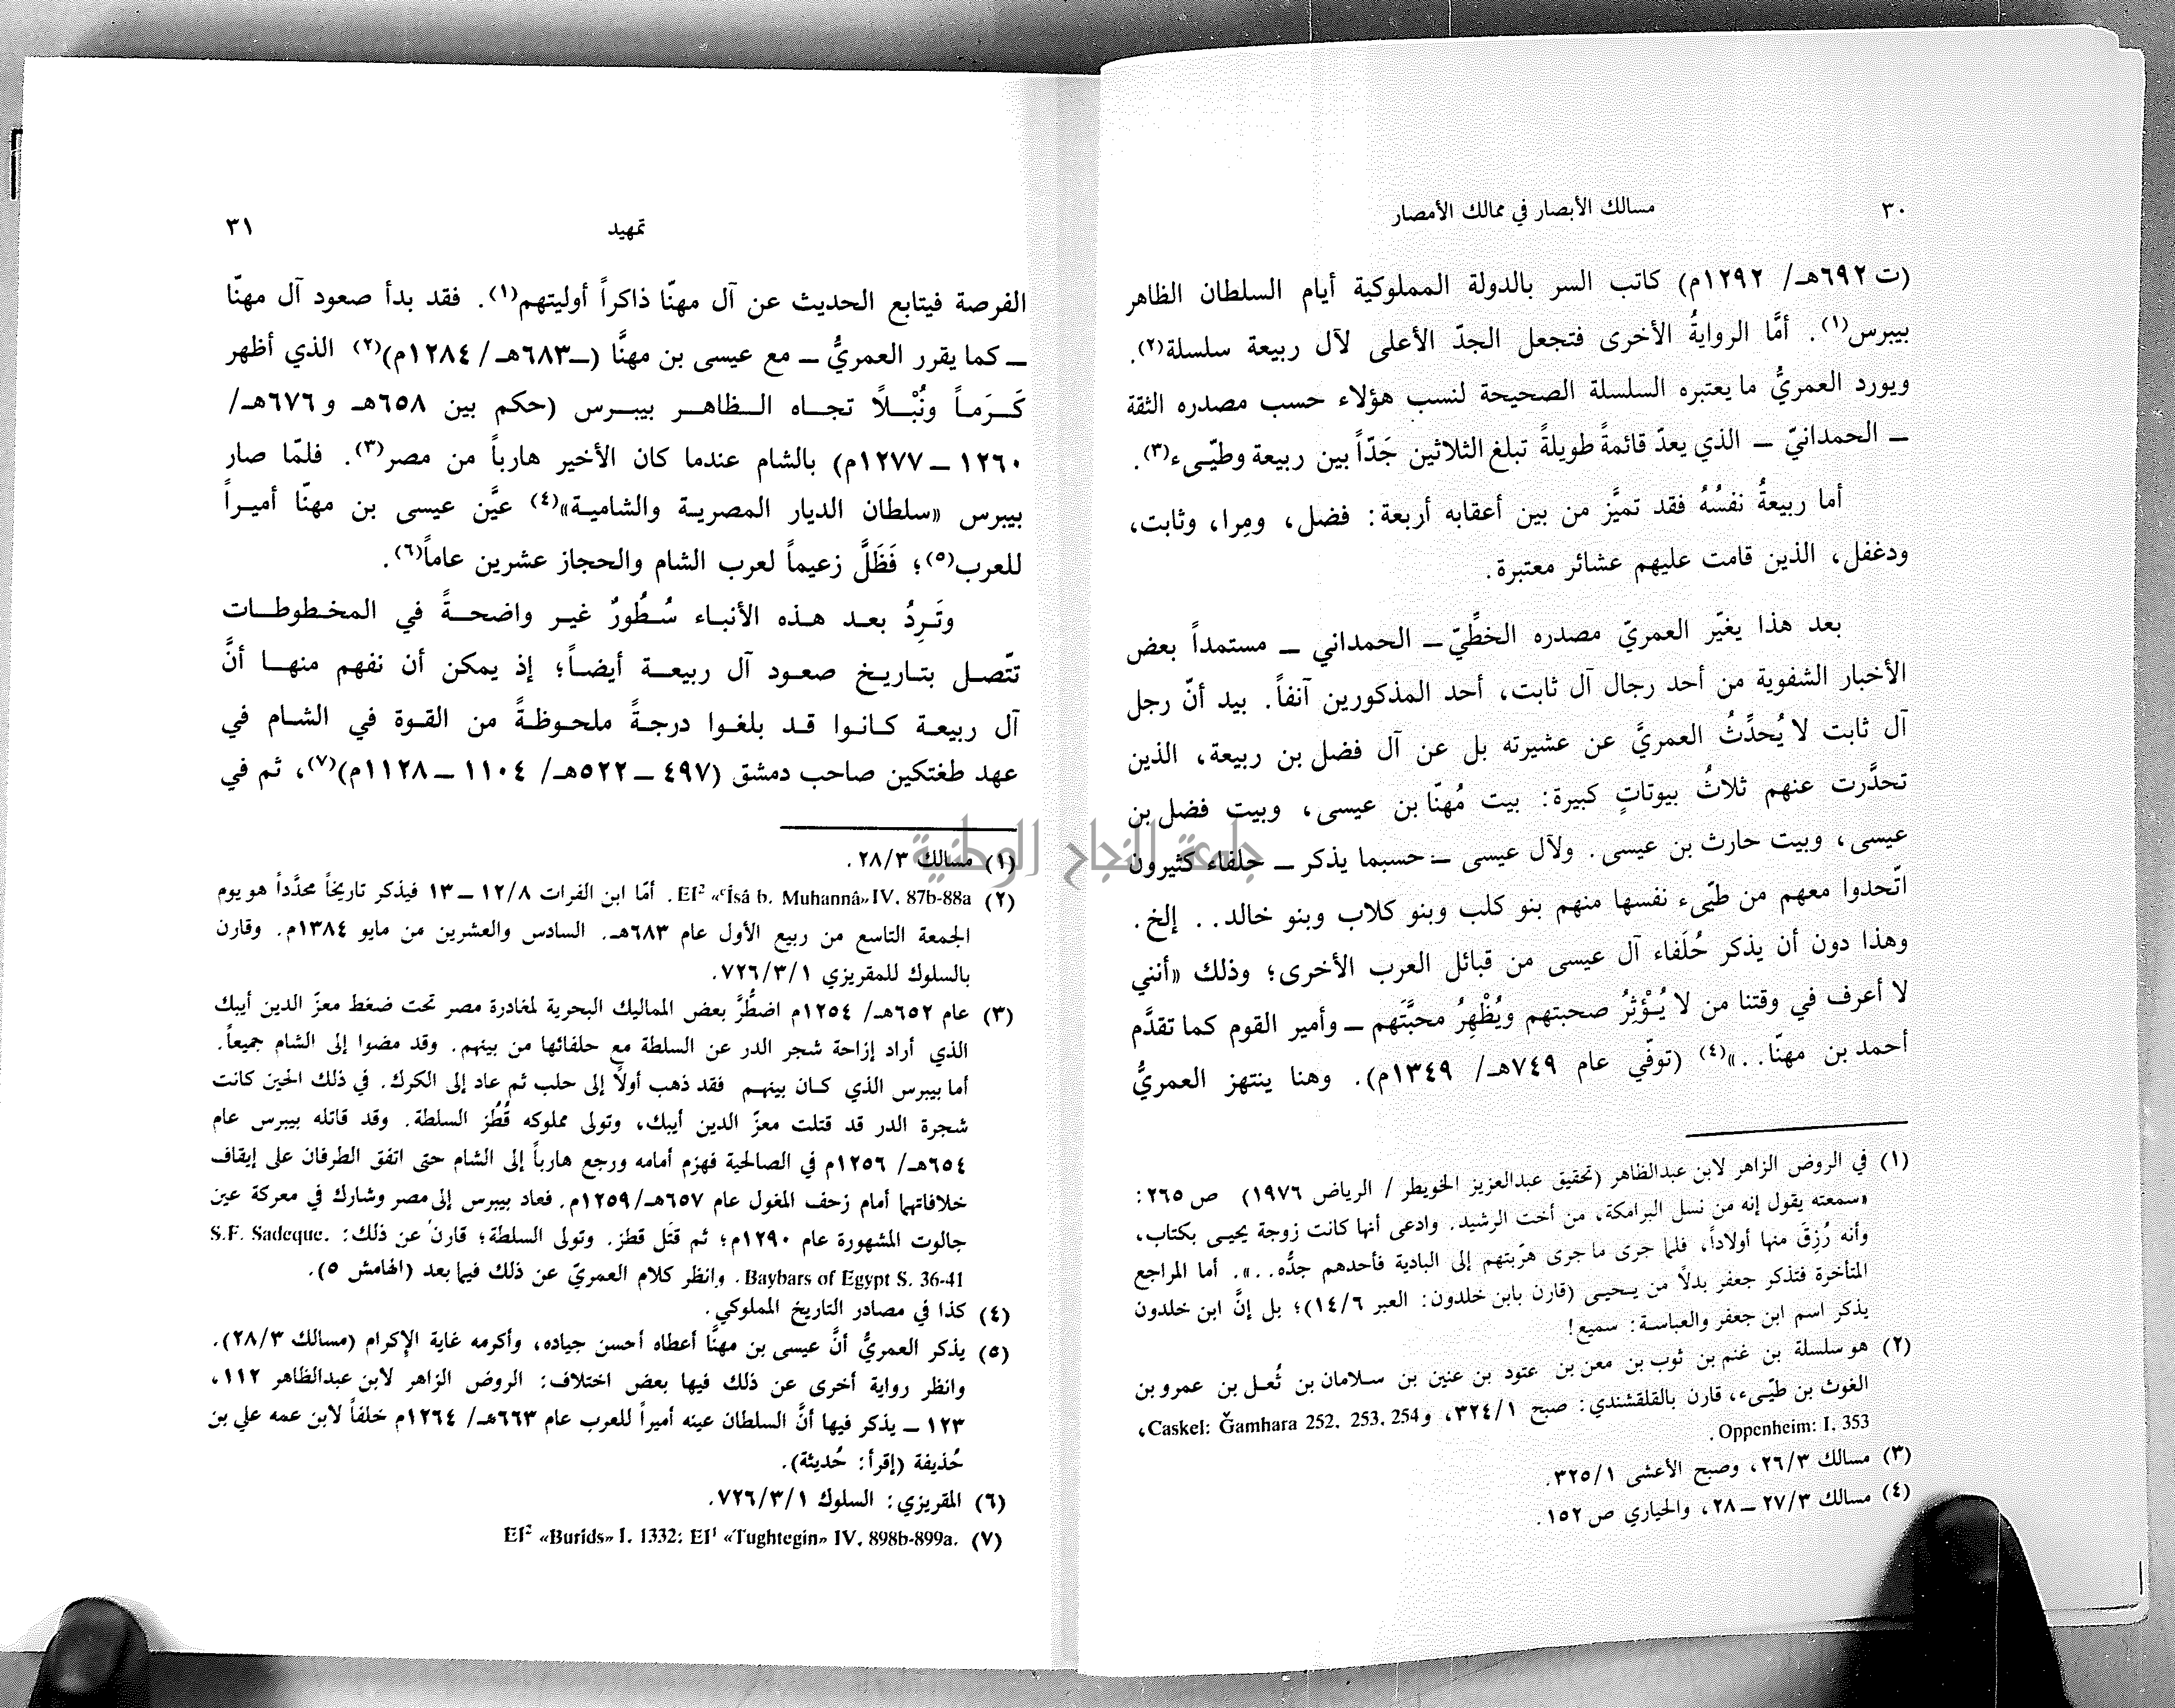 ٣٠
مسالك الأبصار في ممالك الأمصار
(ت ٦٩٢هـ/ ١٢٩٢م) كاتب السر بالدولة المملوكية أيام السلطان الظاهر
بيبرس(١). أمَّا الروايةُ الأخرى فتجعل الجدّ الأعلى لآل ربيعة سلسلة(٢).
ويورد العمريُّ ما يعتبره السلسلة الصحيحة لنسب هؤلاء حسب مصدره الثقة
ــ الحمدانيّ ــ الذي يعدّ قائمةً طويلةً تبلغ الثلاثين جَدّاً بين ربيعة وطيّـىء(٣).
أما ربيعةُ نفسُهُ فقد تميَّز من بين أعقابه أربعة: فضل، ومِرا، وثابت،
ودغفل، الذين قامت عليهم عشائر معتبرة.
بعد هذا يغيّر العمريّ مصدره الخطِّيّ ــ الحمداني ــ مستمداً بعض
الأخبار الشفوية من أحد رجال آل ثابت، أحد المذكورين آنفاً. بيد أنّ رجل
آل ثابت لا يُحدِّثُ العمريَّ عن عشيرته بل عن آل فضل بن ربيعة، الذين
تحدَّرت عنهم ثلاثُ بيوتاتٍ كبيرة: بيت مُهنّا بن عيسى، وبيت فضل بن
عيسى، وبيت حارث بن عيسى. ولآل عيسى ــ حسبما يذكر ــ حلفاء كثيرون
اتّحدوا معهم من طيّىء نفسها منهم بنو كلب وبنو كلاب وبنو خالد.. إلخ.
وهذا دون أن يذكر حُلَفاء آل عيسى من قبائل العرب الأخرى؛ وذلك «أنني
لا أعرف في وقتنا من لا يُـؤْثِرُ صحبتهم ويُظْهِرُ محبَّتَهم ــ وأمير القوم كما تقدَّم
أحمد بن مهنّا..»(٤) (توفّي عام ٧٤٩هـ/ ١٣٤٩م). وهنا ينتهز العمريُّ
(١) في الروض الزاهر لابن عبدالظاهر (تحقيق عبدالعزيز الخويطر / الرياض ١٩٧٦) ص ٢٦٥:
«سمعته يقول إنه من نسل البرامكة، من أخت الرشيد. وادعى أنها كانت زوجة يحيـى بكتاب،
وأنه رُزِقَ منها أولاداً، فلما جرى ما جرى هرّبتهم إلى البادية فأحدهم جدُّه..». أما المراجع
المتأخرة فتذكر جعفر بدلاً من يـحيـى (قارن بابن خلدون: العبر ١٤/٦)؛ بل إنَّ ابن خلدون
يذكر اسم ابن جعفر والعباسة: سميع!
(٢) هو سلسلة بن غنم بن ثوب بن معن بن عتود بن عنين بن سـلامان بن ثُعـل بن عمرو بن
الغوث بن طيّـىء، قارن بالقلقشندي: صبح ٣٢٤/١، و Caskel: Ğamhara 252, 253, 254،
Oppenheim: I, 353.
(٣) مسالك ٢٦/٣، وصبح الأعشى ٣٢٥/١.
(٤) مسالك ٢٧/٣ ــ ٢٨، والحياري ص ١٥٢.
تمهيد
٣١
الفرصة فيتابع الحديث عن آل مهنّا ذاكراً أوليتهم(١). فقد بدأ صعود آل مهنّا
ــ كما يقرر العمريُّ ــ مع عيسى بن مهنَّا (ــ٦٨٣هـ / ١٢٨٤م)(٢) الذي أظهر
كَـرَمـاً ونُبْـلاً تجـاه الـظاهـر بيبـرس (حكم بين ٦٥٨هـ و ٦٧٦هـ/
١٢٦٠ ــ ١٢٧٧م) بالشام عندما كان الأخير هارباً من مصر(٣). فلمّا صار
بيبرس «سلطان الديار المصرية والشامية»(٤) عيَّن عيسى بن مهنّا أميراً
للعرب(٥)؛ فَظَلَّ زعيماً لعرب الشام والحجاز عشرين عاماً(٦).
وتَـرِدُ بعـد هـذه الأنباء سُـطُورٌ غيـر واضحـةً في المخـطوطـات
تتّصـل بتـاريـخ صعـود آل ربيعـة أيضـاً؛ إذ يمكن أن نفهم منهـا أنَّ
آل ربيعـة كـانـوا قـد بلغـوا درجـةً ملحـوظـةً من القـوة في الشـام في
عهد طغتكين صاحب دمشق (٤٩٧ ــ ٥٢٢هـ/ ١١٠٤ ــ ١١٢٨م)(٧)، ثم في
(١) مسالك ٢٨/٣.
(٢) EI² «ʿĪsâ b. Muhannâ» IV, 87b-88a. أمّا ابن الفرات ١٢/٨ ــ ١٣ فيذكر تاريخاً محدَّداً هو يوم
الجمعة التاسع من ربيع الأول عام ٦٨٣هـ. السادس والعشرين من مايو ١٣٨٤م. وقارن
بالسلوك للمقريزي ٧٢٦/٣/١.
(٣) عام ٦٥٢هـ/ ١٢٥٤م اضطُّرَّ بعض المماليك البحرية لمغادرة مصر تحت ضغط معزّ الدين أيبك
الذي أراد إزاحة شجر الدر عن السلطة مع حلفائها من بينهم. وقد مضوا إلى الشام جميعاً.
أما بيبرس الذي كـان بينهـم فقد ذهب أولاً إلى حلب ثم عاد إلى الكرك. في ذلك الحين كانت
شجرة الدر قد قتلت معزّ الدين أيبك، وتولى مملوكه قُطُز السلطة. وقد قاتله بيبرس عام
٦٥٤هـ/ ١٢٥٦م في الصالحية فهزم أمامه ورجع هارباً إلى الشام حتى اتفق الطرفان على إيقاف
خلافاتهما أمام زحف المغول عام ٦٥٧هـ/١٢٥٩م. فعاد بيبرس إلى مصر وشارك في معركة عين
جالوت المشهورة عام ١٢٩٠م؛ ثم قتَل قطز. وتولى السلطة؛ قارن عن ذلك: S.F. Sadeque.
Baybars of Egypt S. 36-41. وانظر كلام العمريّ عن ذلك فيما بعد (الهامش ٥).
(٤) كذا في مصادر التاريخ المملوكي.
(٥) يذكر العمريُّ أنَّ عيسى بن مهنَّا أعطاه أحسن جياده، وأكرمه غاية الإكرام (مسالك ٢٨/٣).
وانظر رواية أخرى عن ذلك فيها بعض اختلاف: الروض الزاهر لابن عبدالظاهر ١١٢،
١٢٣ ــ يذكر فيها أنَّ السلطان عينه أميراً للعرب عام ٦٦٣هـ/ ١٢٦٤م خلفاً لابن عمه علي بن
حُذيفة (إقرأ: حُديثة).
(٦) المقريزي: السلوك ٧٢٦/٣/١.
(٧) EI² «Burids» I, 1332; EI¹ «Tughtegin» IV, 898b-899a.
جامعة النجاح الوطنية